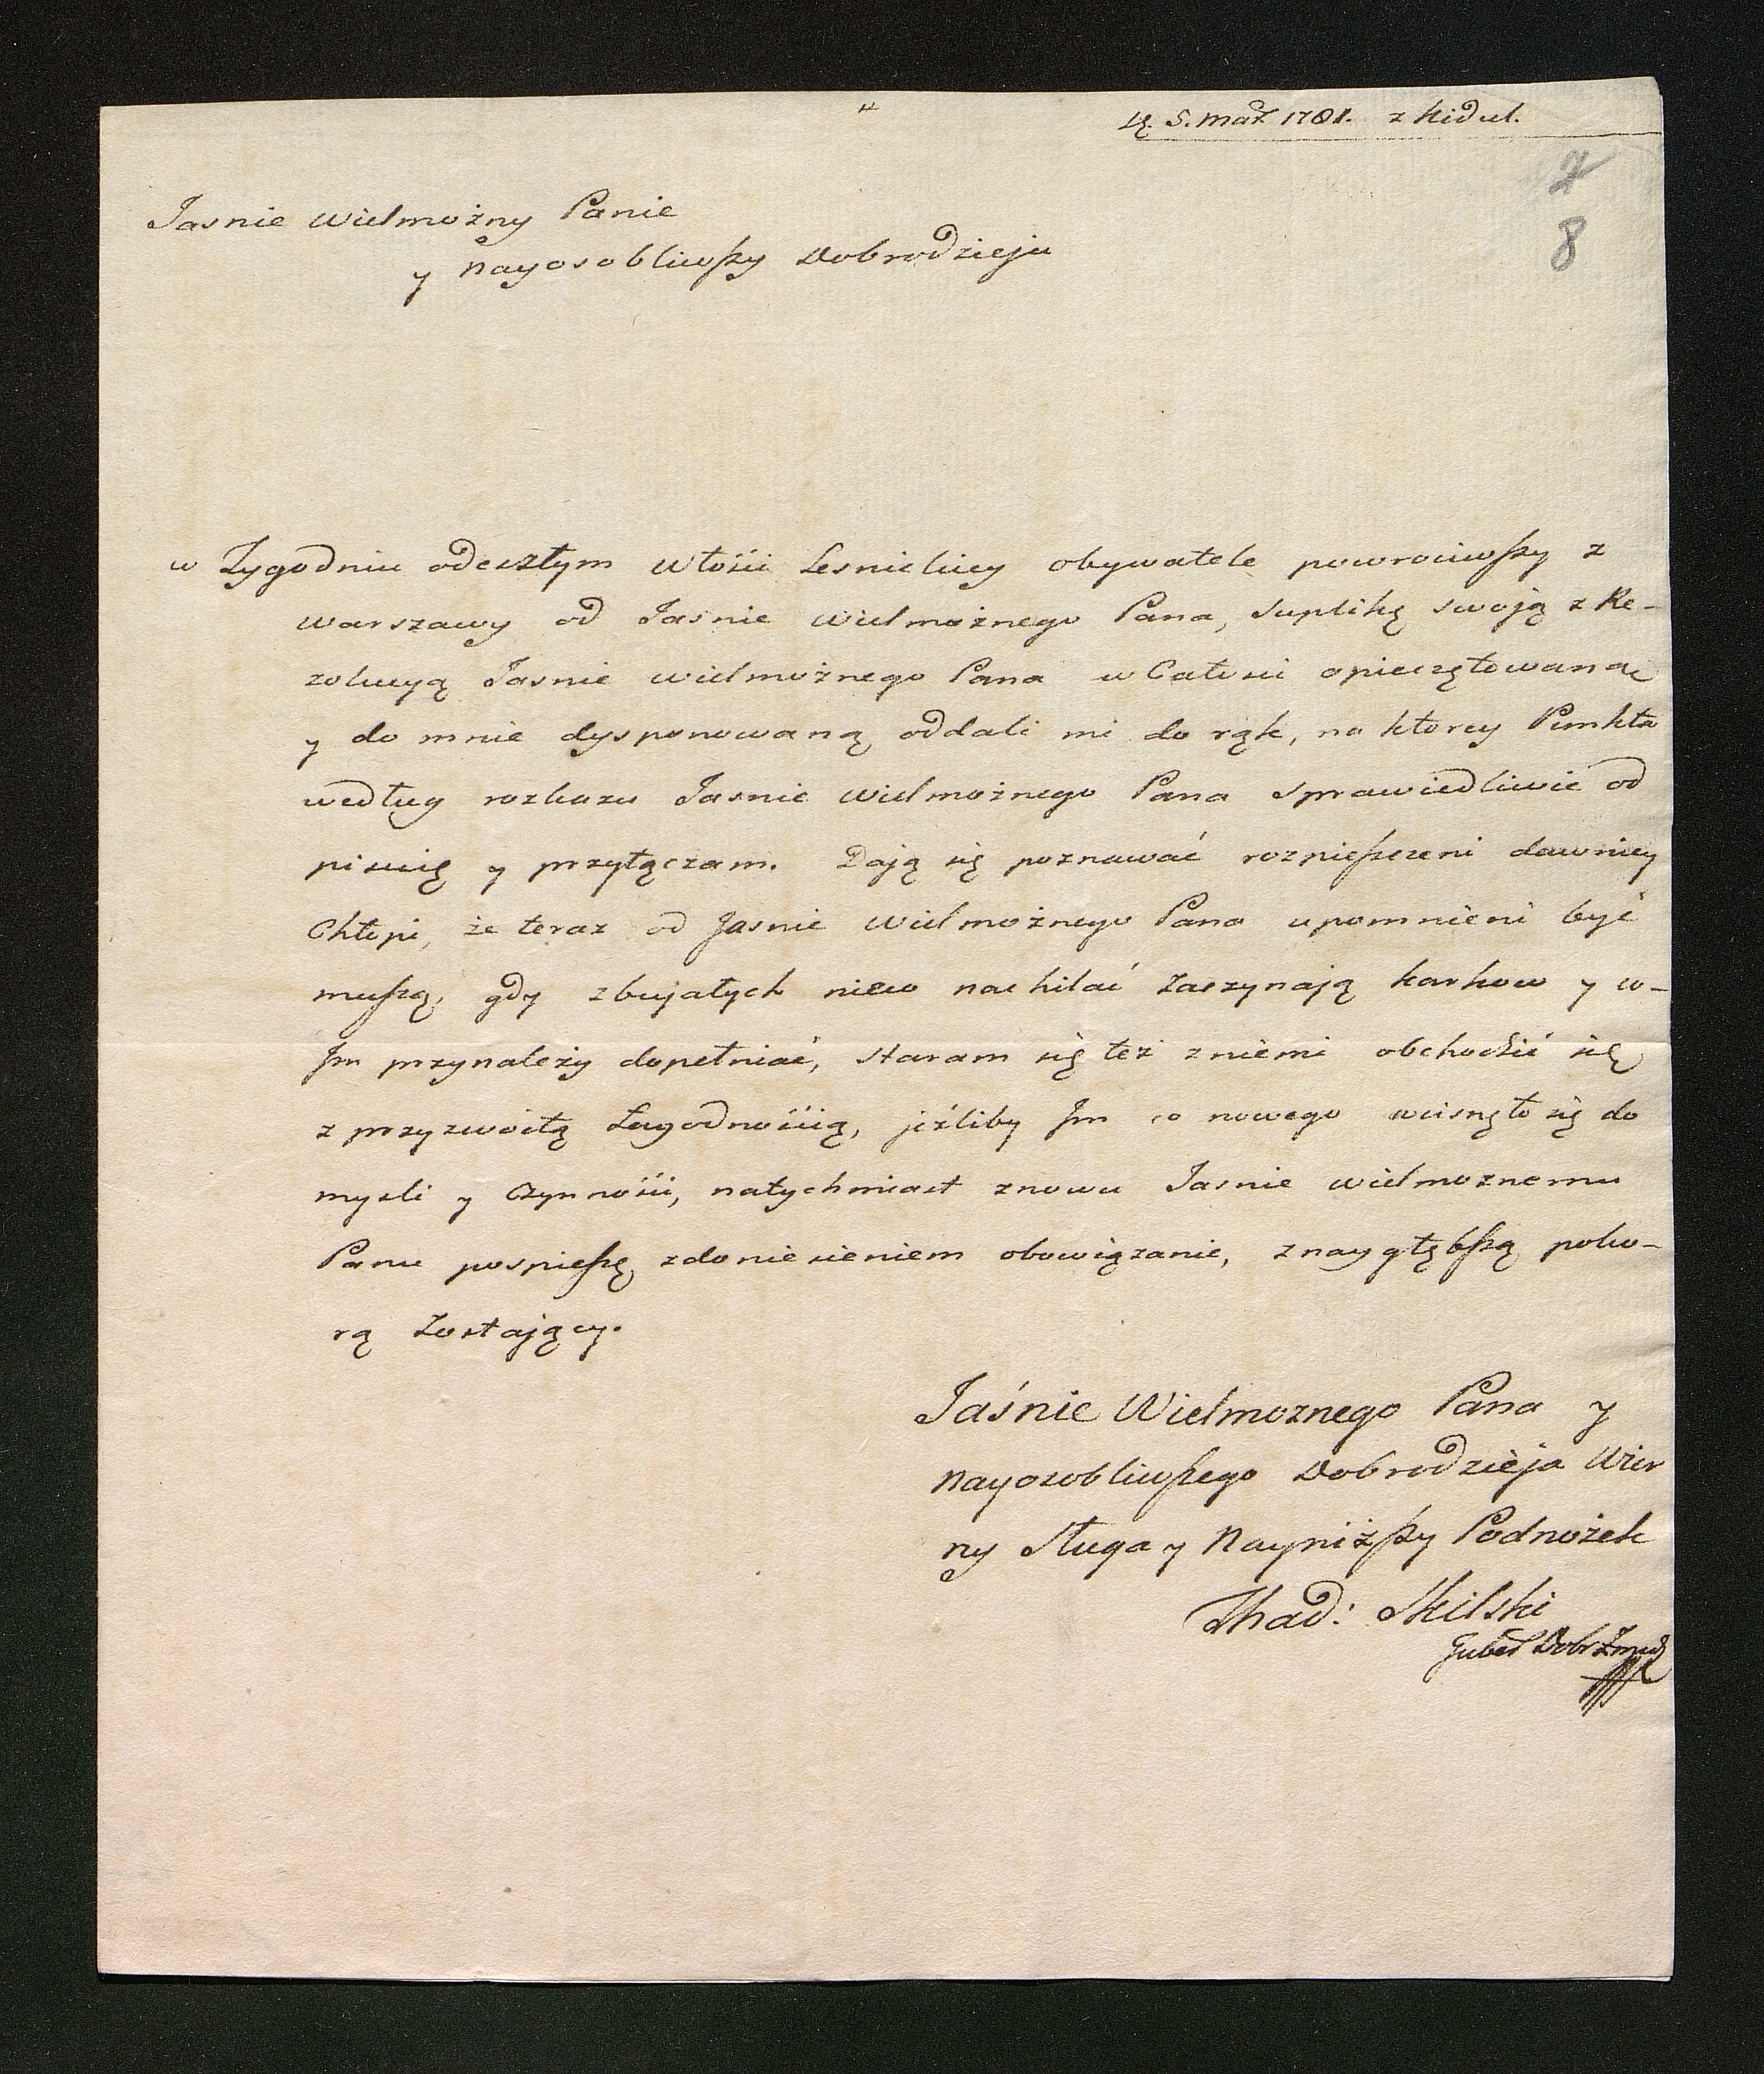 5. Mar. 1781. z Kidul.
7
8
Jasnie Wielmożny Panie
y Nayosobliwszy Dobrodzieju
w Tygodniu odeszłym Włości Lesnickiey obywatele powrociwszy z
Warszawy od Jasnie Wielmożnego Pana, Suplikę swoją z Re-
zolucyą Jasnie Wielmożnego Pana w Całosci opieczętowaną
y do mnie dysponowaną oddali mi do rąk, na ktorey Punkta
według rozkazu Jasnie Wielmożnego Pana Sprawiedliwie od
pisuię y przyłączam. Dają się poznawać rozpieszczeni dawniey
Chłopi, że teraz od Jasnie Wielmożnego Pana upomnieni być
muszą, gdy zbujałych nieco nachilać zaczynają karkow y co-
Jm przynależy dopełniać, staram się też z niemi obchodzić się
z przyzwoitą Łagodnością, jeźliby Jm co nowego wcisnęło się do
mysli y Czynności, natychmiast znowu Jasnie Wielmoznemu
Panu pospieszę z doniesieniem obowiązanie, z naygłębszą poko-
rą Zostający.
Jaśnie Wielmoznego Pana y
Nayosobliwszego Dobrodzieja Wier
ny Sługa y Nayniższy Podnożek
Thad: Skilski
Guber Dobr Zmudz